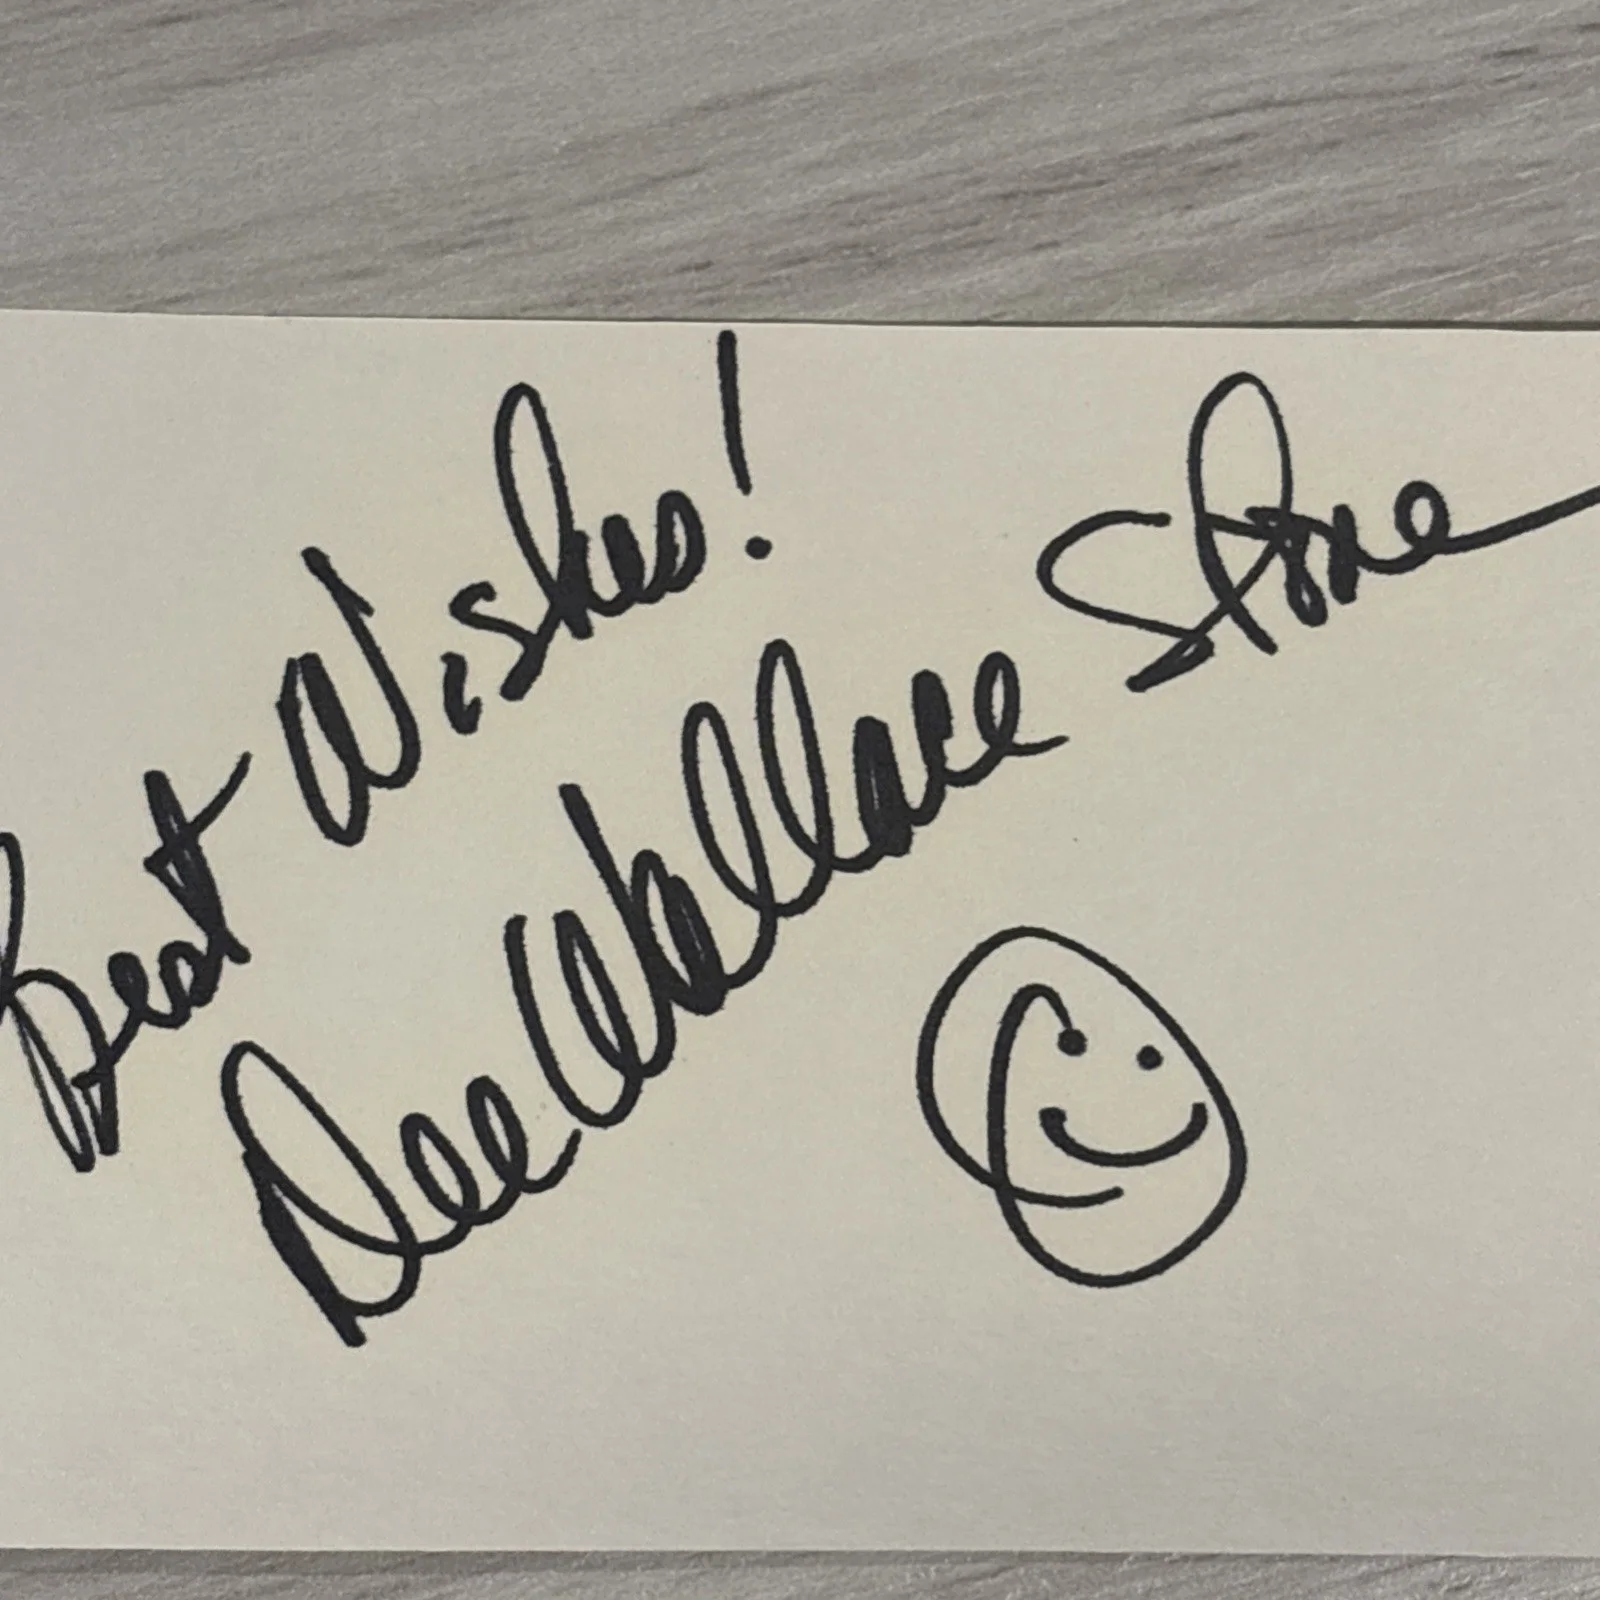 Best Wishes!
Dee Wallace Stone